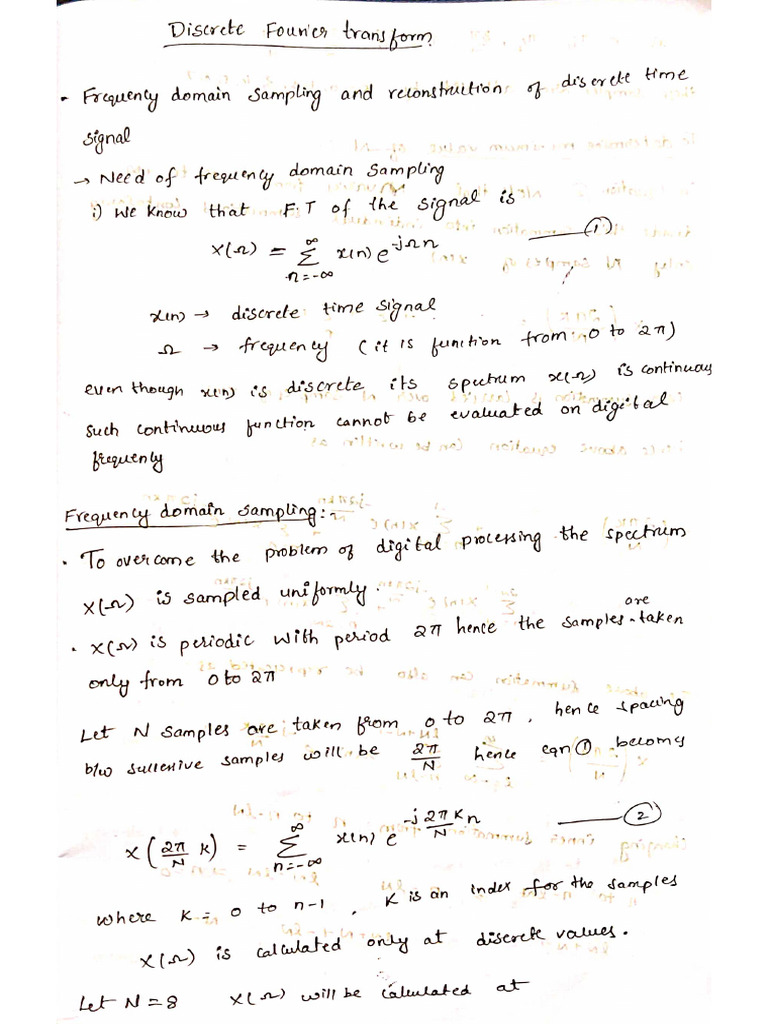 Discrete Fourier transform
• Frequency domain sampling and reconstruction of discrete time
signal
→ Need of frequency domain sampling
i) We know that F.T of the signal is
X(Ω) = ∞ Σ n=-∞ x(n) e^-jΩn —— ①
x(n) → discrete time signal
Ω → frequency (it is function from 0 to 2π)
even though x(n) is discrete its spectrum X(Ω) is continuous
such continuous function cannot be evaluated on digital
frequency
Frequency domain sampling:-
• To overcome the problem of digital processing the spectrum
X(Ω) is sampled uniformly.
• X(Ω) is periodic with period 2π hence the samples are taken
only from 0 to 2π
Let N samples are taken from 0 to 2π, hence spacing
b/w sullenive samples will be 2π/N hence eqn ① becomes
X(2π/N k) = ∞ Σ n=-∞ x(n) e^-j2πkn/N —— ②
where K = 0 to n-1, K is an index for the samples
X(Ω) is calculated only at discrete values.
Let N=8 X(Ω) will be calculated at